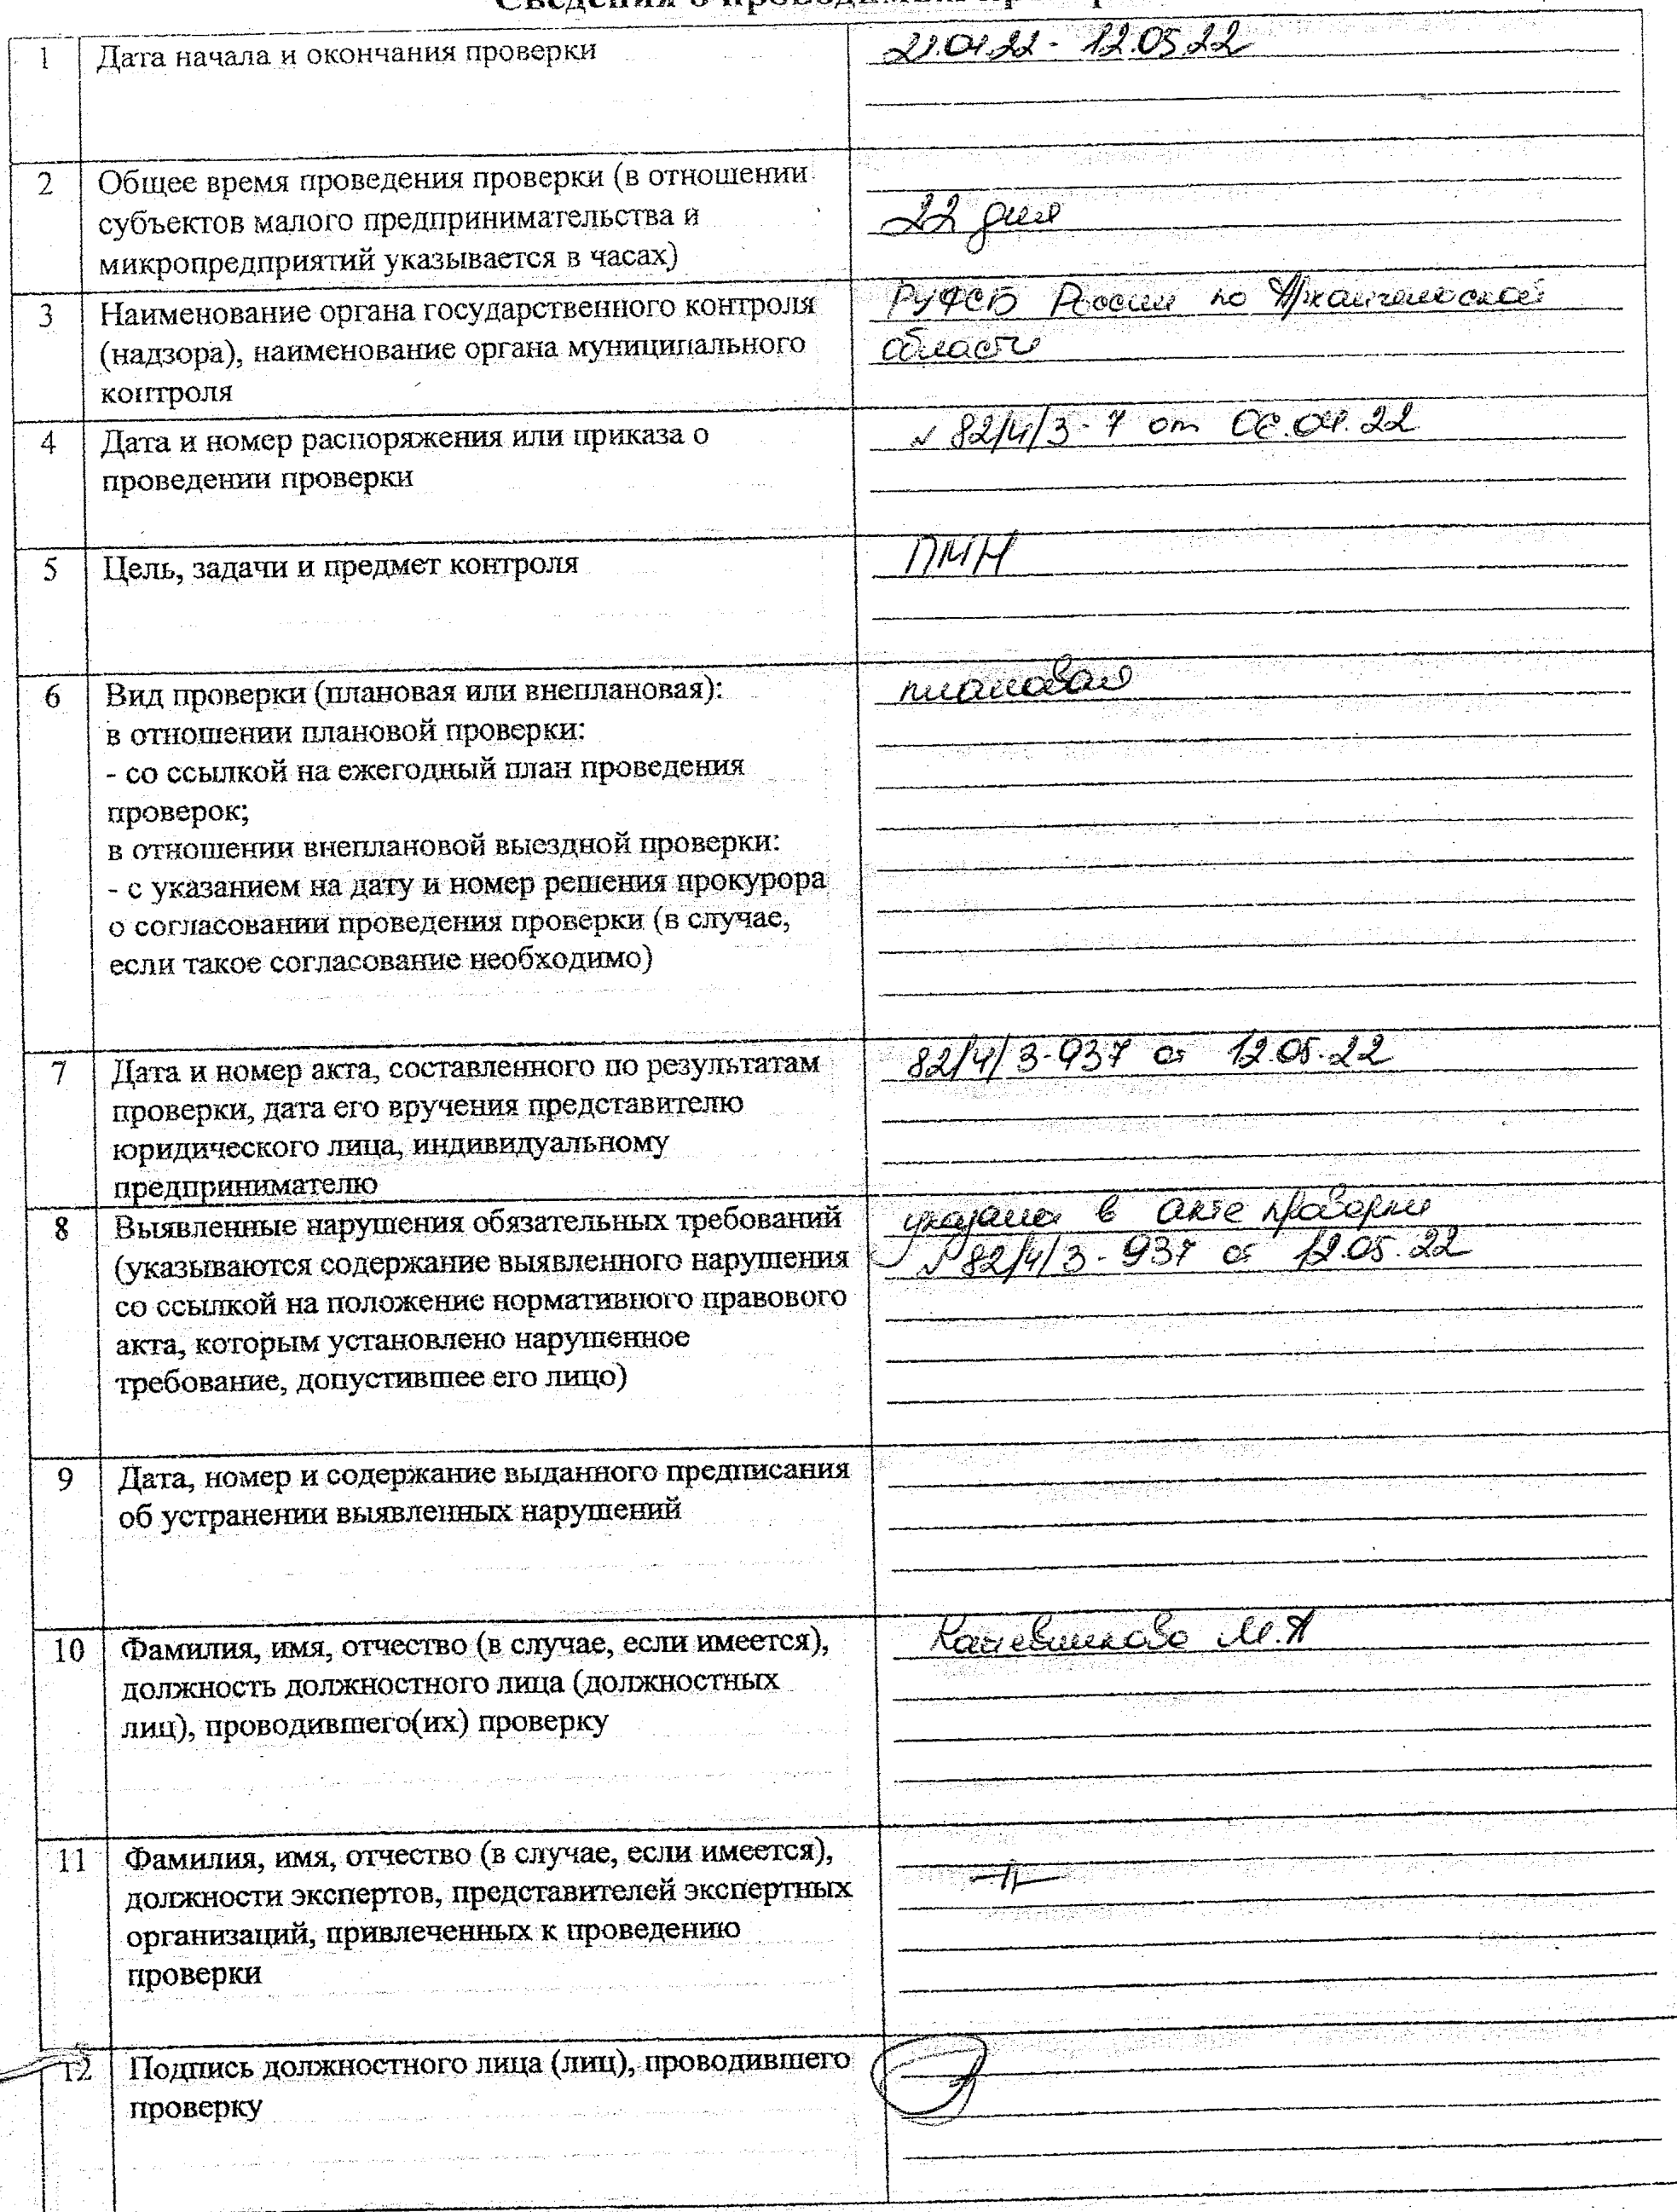 1 Дата начала и окончания проверки
21.04.22 - 12.05.22
2 Общее время проведения проверки (в отношении
субъектов малого предпринимательства и
микропредприятий указывается в часах)
22 дня
3 Наименование органа государственного контроля
(надзора), наименование органа муниципального
контроля
РУФСБ России по Архангельской
области
4 Дата и номер распоряжения или приказа о
проведении проверки
№ 82/4/3-7 от 06.04.22
5 Цель, задачи и предмет контроля
ПМН
6 Вид проверки (плановая или внеплановая):
в отношении плановой проверки:
- со ссылкой на ежегодный план проведения
проверок;
в отношении внеплановой выездной проверки:
- с указанием на дату и номер решения прокурора
о согласовании проведения проверки (в случае,
если такое согласование необходимо)
плановая
7 Дата и номер акта, составленного по результатам
проверки, дата его вручения представителю
юридического лица, индивидуальному
предпринимателю
82/4/3-937 от 12.05.22
8 Выявленные нарушения обязательных требований
(указываются содержание выявленного нарушения
со ссылкой на положение нормативного правового
акта, которым установлено нарушенное
требование, допустившее его лицо)
указаны в акте проверки
№ 82/4/3-937 от 12.05.22
9 Дата, номер и содержание выданного предписания
об устранении выявленных нарушений
10 Фамилия, имя, отчество (в случае, если имеется),
должность должностного лица (должностных
лиц), проводившего(их) проверку
М.А
11 Фамилия, имя, отчество (в случае, если имеется),
должности экспертов, представителей экспертных
организаций, привлеченных к проведению
проверки
12 Подпись должностного лица (лиц), проводившего
проверку